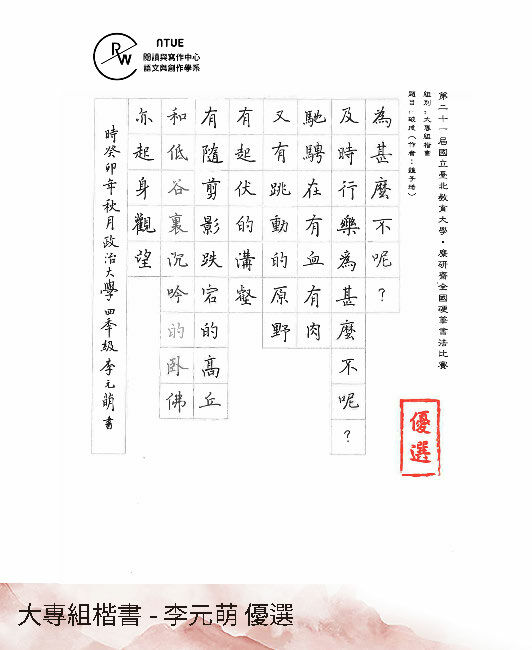 NTUE
RW
閱讀與寫作中心
語文與創作學系
第二十一屆國立臺北教育大學・麋研齋全國硬筆書法比賽
組別：大專組楷書
為甚麼不呢？
及時行樂為甚麼不呢？
馳騁在有血有肉
又有跳動的原野
有起伏的溝壑
有隨剪影跌宕的高丘
和低谷裏沉吟的臥佛
亦起身觀望
時癸卯年秋月政治大學四年級李元萌書
優選
大專組楷書 - 李元萌 優選